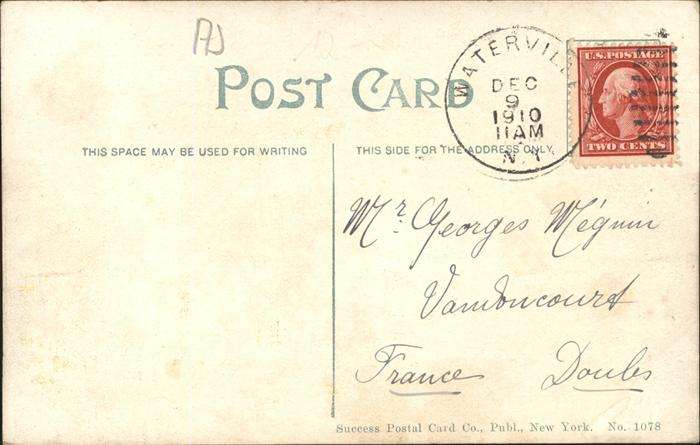 PJ
POST CARD
THIS SPACE MAY BE USED FOR WRITING
THIS SIDE FOR THE ADDRESS ONLY
WATERVILLE
DEC
9
1910
11AM
N.Y.
U.S. POSTAGE
TWO CENTS
Mr. Georges Méguin
Vandoncourt
France Doubs
Success Postal Card Co., Publ., New York. No. 1078